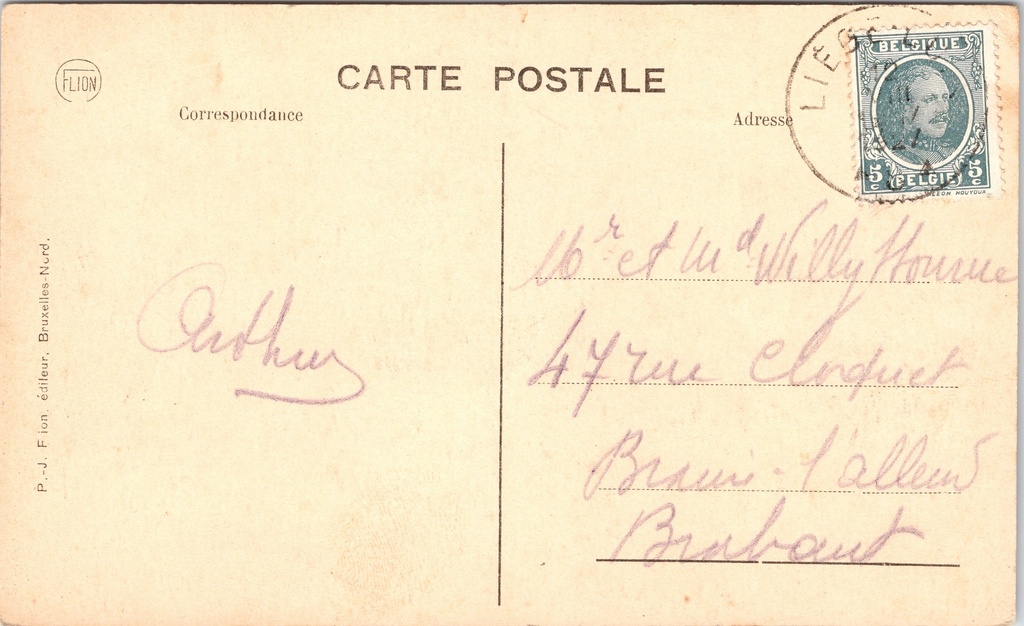 FLION
CARTE POSTALE
Correspondance
Adresse
LIÉGE
BELGIQUE
5 c BELGIË 5 c
P.-J. Flion, éditeur, Bruxelles-Nord.
Arthur
Mr et Md Willy
47 rue Cloquet
Braine-l'alleud
Brabant